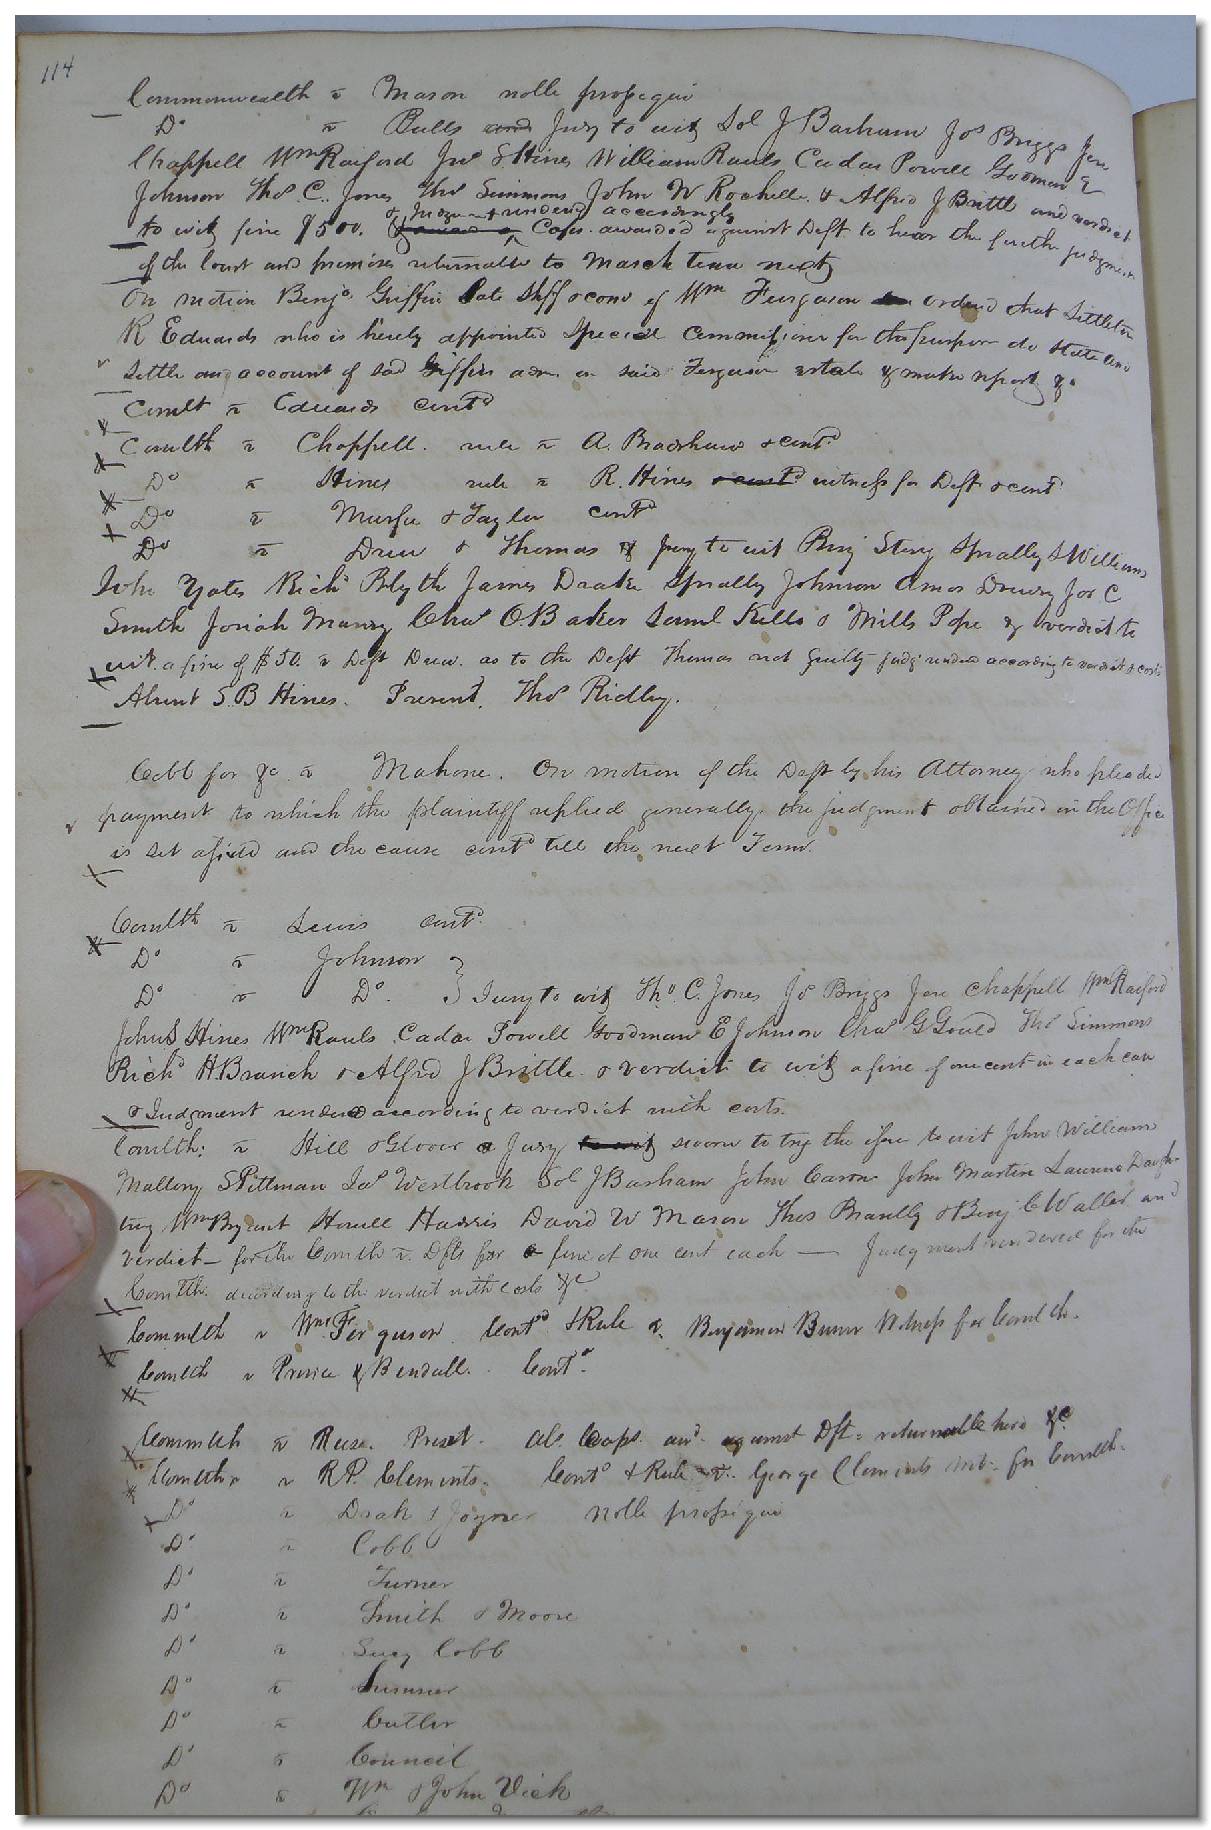 114
Commonwealth v Mason nolle prosequi
Do v Bulls and Jury to wit Sol J Barham Jos Briggs Jere
Chappell Wm Raiford Jno S Hines William Rauls Cadar Powell Goodman E
Johnson Thos C. Jones Thos Simmons John W Rochell & Alfred J Brittle and verdict
& Judgmt rendered accordingly
to wit fine $500. Capias awarded against Deft to hear the further judgment
of the Court and premises returnable to March term next
On motion Benja Griffin late Shff & com of Wm Ferguson ordered that Littleton
R Edwards who is hereby appointed Special Commissioner for this purpose do state and
settle an account of sad Griffins adm on said Ferguson estate & make report &c
Comlt v Edwards contd
Comlth v Chappell. rule v A. Bradshaw & contd
Do v Hines rule v R. Hines & contd witness for Deft & contd
Do v Murfee & Taylor contd
Do v Drew & Thomas & jury to wit Benj Story Spratley S Williams
John Yates Richd Blyth James Drake Spratley Johnson Amos Drewry Jos C
Smith Josiah Manry Chas O. Barker Saml Kello & Mills Pope & verdict to
wit. a fine of $50. v Deft Drew. as to the Deft Thomas not guilty judgt rendered according to verdict & costs
Absent S.B Hines. Present. Thos Ridley.
Cobb for &c v Mahone. On motion of the Deft by his Attorney who pleaded
payment to which the plaintiff replied generally. the judgment obtained in the Office
is set aside and the cause contd till the next Term.
Comlth v Lewis contd
Do v Johnson }
Do v Do. } Jury to wit Tho. C. Jones Js Briggs Jere Chappell Wm Raiford
John S Hines Wm Rauls Cadar Powell Goodman E Johnson Chas G Gould Thos Simmons
Richd H. Branch & Alfred J Brittle & verdict to wit a fine of one cent in each case
& Judgment rendered according to verdict with costs.
Comlth: v Hill & Glover a Jury to wit sworn to try the issue to wit John William
Mallory S Pittman Jas Westbrook Sol J Barham John Eason John Martin Laurence Daugh-
try Wm Bryant Howell Harris David W Mason Thos Brantly & Benj C Waller and
verdict - for the Comlth v. Dfts for a fine of one cent each — Judgment rendered for the
Comlth. according to the verdict with costs &c
Commlth v Wm Ferguson Contd & Rule v. Benjamin Bunn Witness for Comlth.
Comlth v Prince & Bendall. Contd.
Commlth v Reese. Presnt. Als Caps. awd. against Dft. returnable here &c
Comlth. v R P. Clements. Contd & Rule v. George Clements wit. for Comlth.
Do v Drake & Joyner nolle prosequi
Do v Cobb
Do v Turner
Do v Smith & Moore
Do v Suey Cobb
Do v Sumner
Do v Cutler
Do v Council
Do v Wm & John Vick